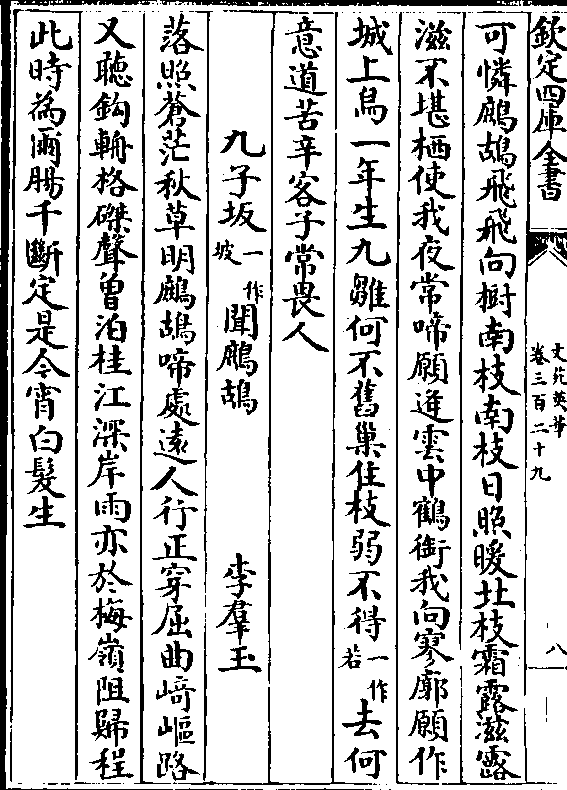 欽定四庫全書
文苑英華
卷三百二十九
八
可憐鷓鴣飛飛向樹南枝南枝日照暖北枝霜露滋露
滋不堪栖使我夜常啼願逢雲中鶴銜我向寥廓願作
城上烏一年生九雛何不舊巢住枝弱不得一作若去何
意道苦辛客子常畏人
九子坂一作坡聞鷓鴣 李羣玉
落照蒼茫秋草明鷓鴣啼處遠人行正穿屈曲﨑嶇路
又聽鈎輈格磔聲曾泊桂江深岸雨亦於梅嶺阻歸程
此時為爾腸千斷定是今宵白髮生